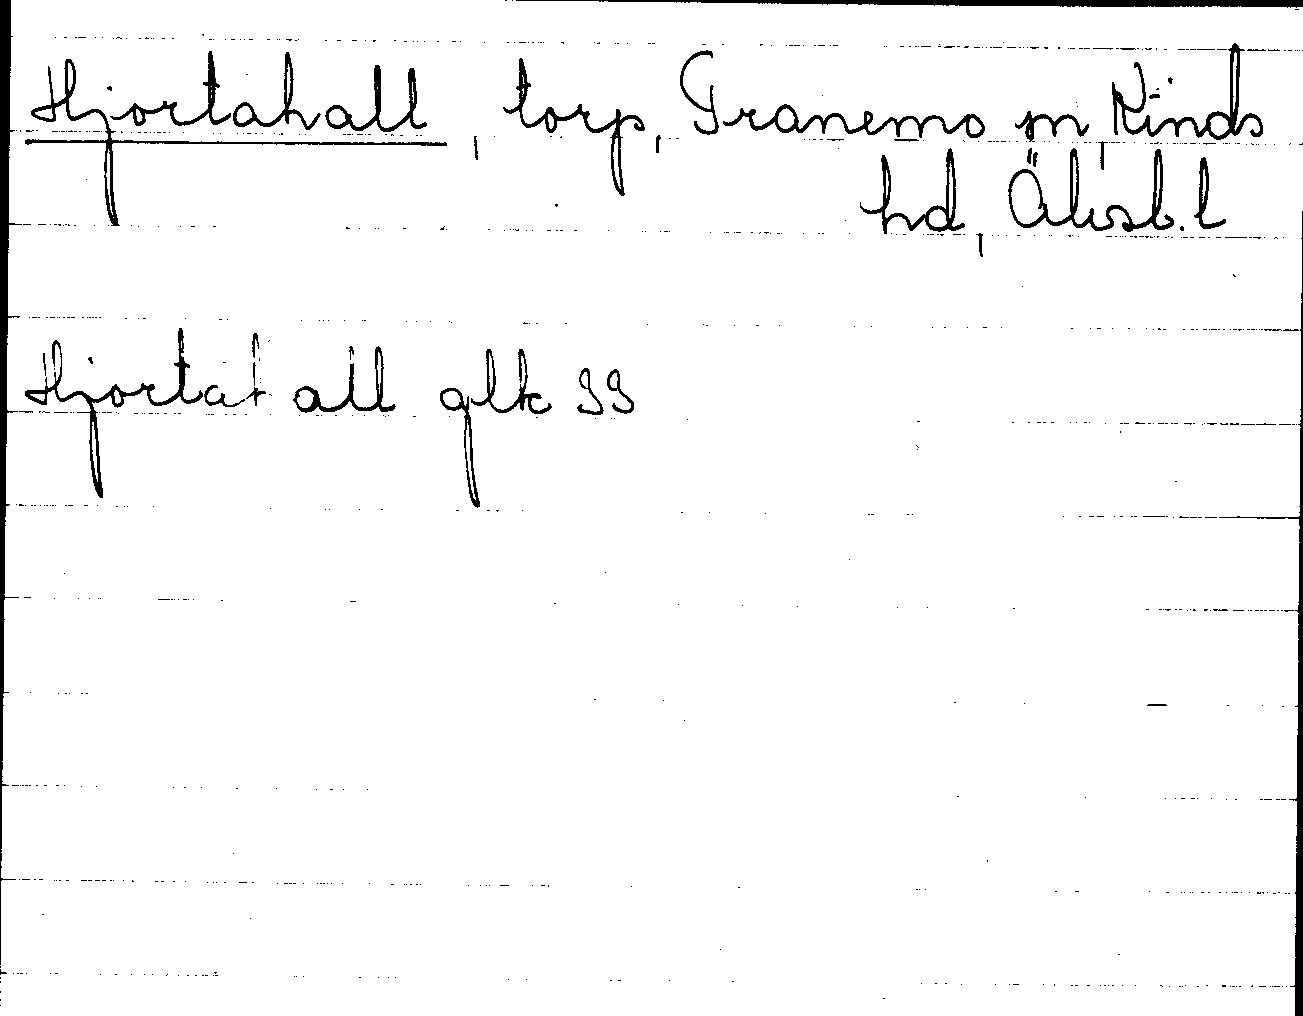 Hjortahall, torp, Tranemo sn, Kinds
hd, Älvsb. l
Hjortat all glk 99